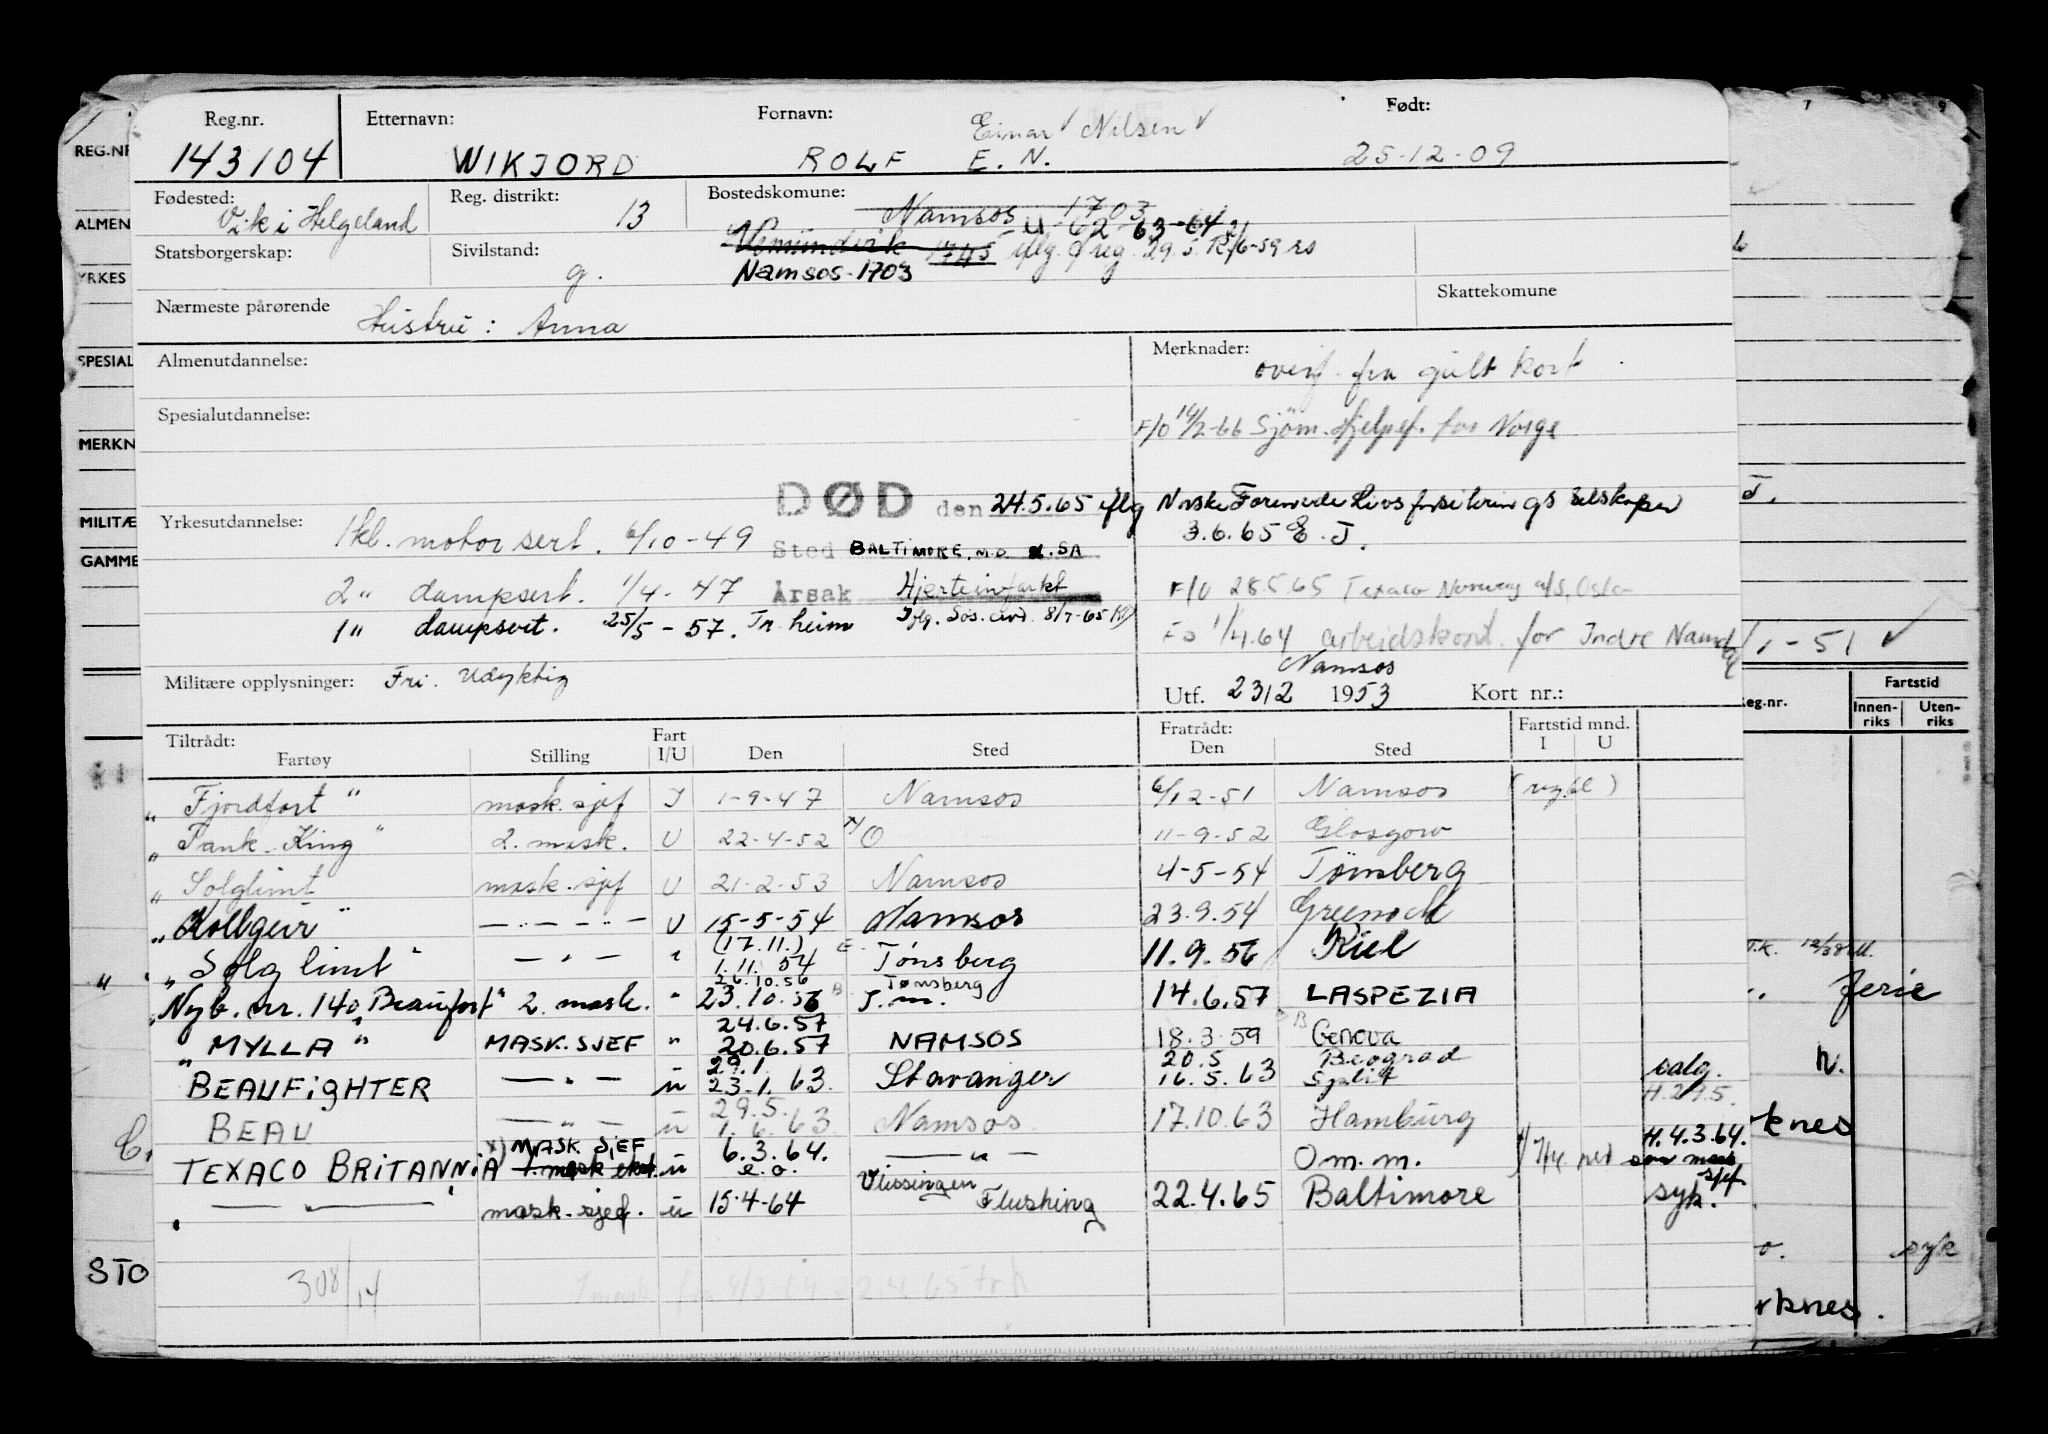 Reg.nr. Etternavn: Fornavn: Einar Nilsen Født:
143104 WIKJORD ROLF E. N. 25-12-09
Fødested: Vik i Helgeland Reg. distrikt: 13 Bostedskomune: Namsos 1703
U 62 63-64
Statsborgerskap: Sivilstand: g. Vemundvik 1745 iflg. f reg. 29.5.
Namsos-1703
Nærmeste pårørende Hustru: Anna Skattekomune
Almenutdannelse: Merknader: overf. fra gult kort
Spesialutdannelse: F/O 14/2-66 Sjöm. Hjelpef. for Norge
DØD den 24.5.65 iflg Norske Forenede Livsforsikrings Selskaper
3.6.65 E. J.
Yrkesutdannelse: 1 kl. motorsert. 6/10-49 Sted BALTIMORE, M.D. U.SA
2 " dampsert. 1/4-47 Årsak Hjerteinfarkt F/O 28.5.65 Texaco Norway a/s. Oslo
1 " dampsert. 25/5-57. Tr.heim Iflg. Sos. avd. 8/7-65 Fo 1/4.64 arbeidskont. for Indre Namdal
Namsos
Militære opplysninger: Fri. Udyktig Utf. 23/2 1953 Kort nr.:
Tiltrådt: Fartøy Stilling Fart I/U Den Sted Fratrådt: Den Sted Fartstid mnd. I U
"Fjordfort" mask.sjef I 1-9-47 Namsos 6/12-51 Namsos
"Tank King" 2. mask. U 22-4-52 O 11-9-52 Glasgow
"Solglimt mask.sjef U 21-2-53 Namsos 4-5-54 Tønsberg
"Kollgeir" — " — " — U 15-5-54 Namsos 23.9.54 Greenock
(17.11.)
"Solglimt" — " — " 1.11.54 Tønsberg 11.9.56 Kiel
26.10.56 Tønsberg
Nyb. nr. 140 "Beaufort" 2. mask. " 23.10.56 T.m. 14.6.57 LASPEZIA
24.6.57
"MYLLA" MASK.SJEF " 20.6.57 NAMSOS 18.3.59 Genova
29.1. 20.5 Beograd
BEAUFIGHTER — " — u 23.1.63. Stavanger 16.5.63 Split salg.
29.5. H.29.5.
BEAU — " — u 1.6.63 Namsos 17.10.63 Hamburg
x) MASK SJEF H.4.3.64.
TEXACO BRITANNIA 1. mask ekst. u 6.3.64. — " — Om.m. som mask sjef
e.o.
— " — mask.sjef. u 15.4-64 Vlissingen Flushing 22.4.65 Baltimore syk.
308/14
REG.NR
ALMEN
YRKES
SPESIAL
MERKN
MILITÆ
GAMME
STO
1-51
Reg.nr. Fartstid
Innen-riks Uten-riks
ferie
rknes
syk
rknes.